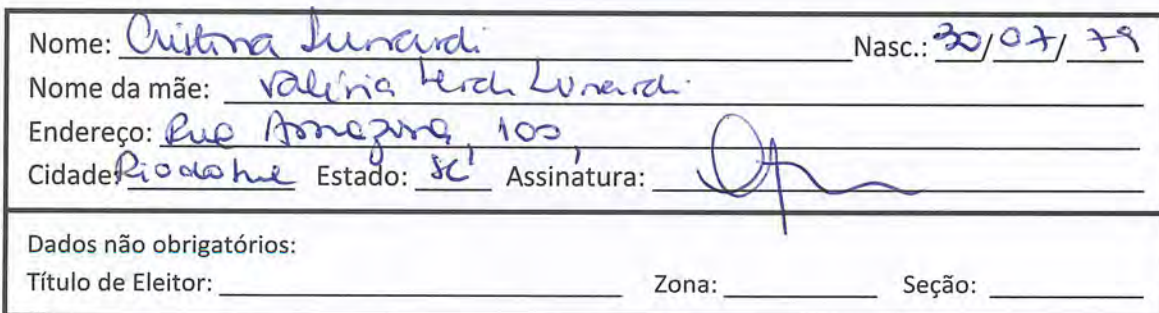 Nome: Cristina Lunardi Nasc.: 30/07/79
Nome da mãe: Valéria Lunardi
Endereço: Rua Amazonas, 100,
Cidade: Rio do Sul Estado: SC Assinatura:
Dados não obrigatórios:
Título de Eleitor: Zona: Seção: